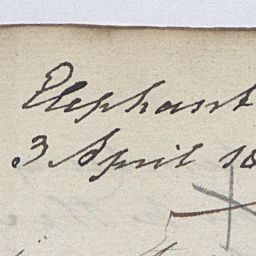 Elephant
3 April 18